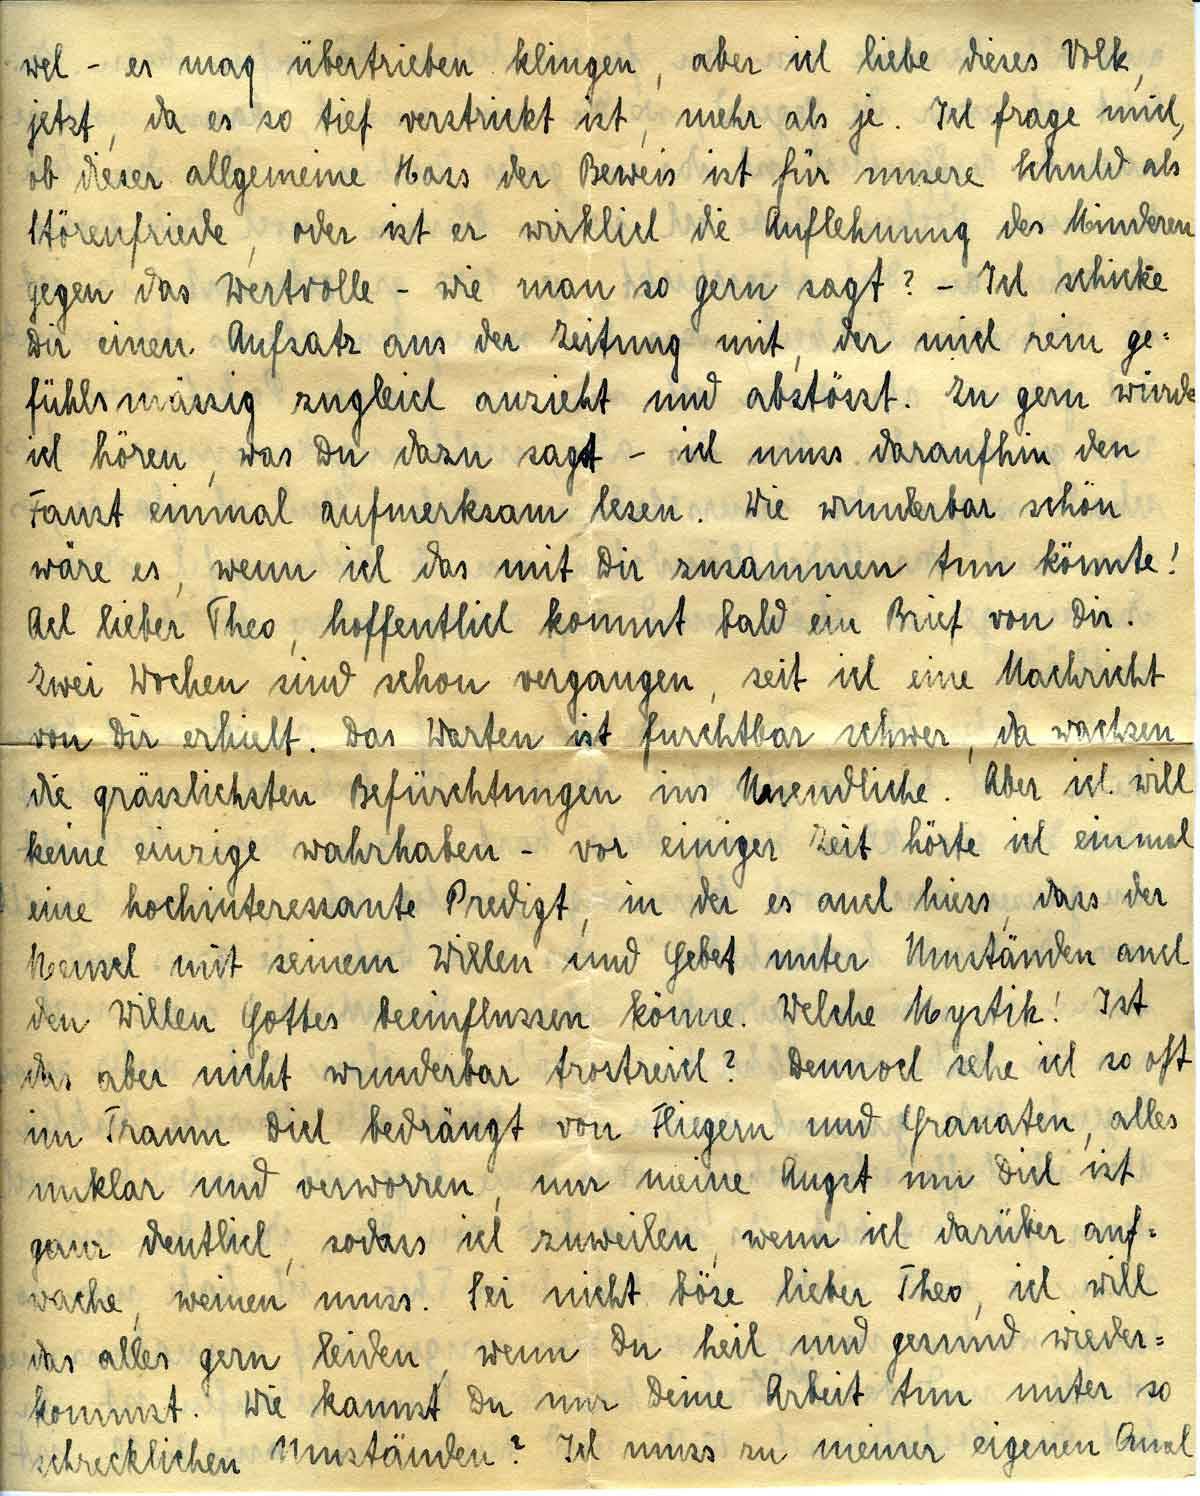 wel - es mag übertrieben klingen, aber ich liebe dieses Volk,
jetzt, da es so tief verstrickt ist, mehr als je. Ich frage mich,
ob dieser allgemeine Hass der Beweis ist für unsere Schuld als
Störenfriede, oder ist er wirklich die Auflehnung des Minderen
gegen das Wertvolle - wie man so gern sagt? - Ich schicke
Dir einen Aufsatz aus der Zeitung mit, der mich rein ge=
fühlsmässig zugleich anzieht und abstösst. Zu gern würde
ich hören, was Du dazu sagst - ich muss daraufhin den
Faust einmal aufmerksam lesen. Wie wunderbar schön
wäre es, wenn ich das mit Dir zusammen tun könnte!
Ach lieber Theo, hoffentlich kommt bald ein Brief von Dir.
Zwei Wochen sind schon vergangen, seit ich eine Nachricht
von Dir erhielt. Das Warten ist furchtbar schwer, da wachsen
die grässlichsten Befürchtungen ins Unendliche. Aber ich will
keine einzige wahrhaben - vor einiger Zeit hörte ich einmal
eine hochinteressante Predigt, in der es auch hiess, dass der
Mensch mit seinem Willen und Gebet unter Umständen auch
den Willen Gottes beeinflussen könne. Welche Mystik! Ist
das aber nicht wunderbar trostreich? Dennoch sehe ich so oft
im Traum Dich bedrängt von Fliegern und Granaten, alles
unklar und verworren, nur meine Angst um Dich ist
ganz deutlich, sodass ich zuweilen, wenn ich darüber auf=
wache, weinen muss. Sei nicht böse lieber Theo, ich will
das alles gern leiden, wenn Du heil und gesund wieder=
kommst. Wie kannst Du nur Deine Arbeit tun unter so
schrecklichen Umständen? Ich muss zu meiner eigenen Qual